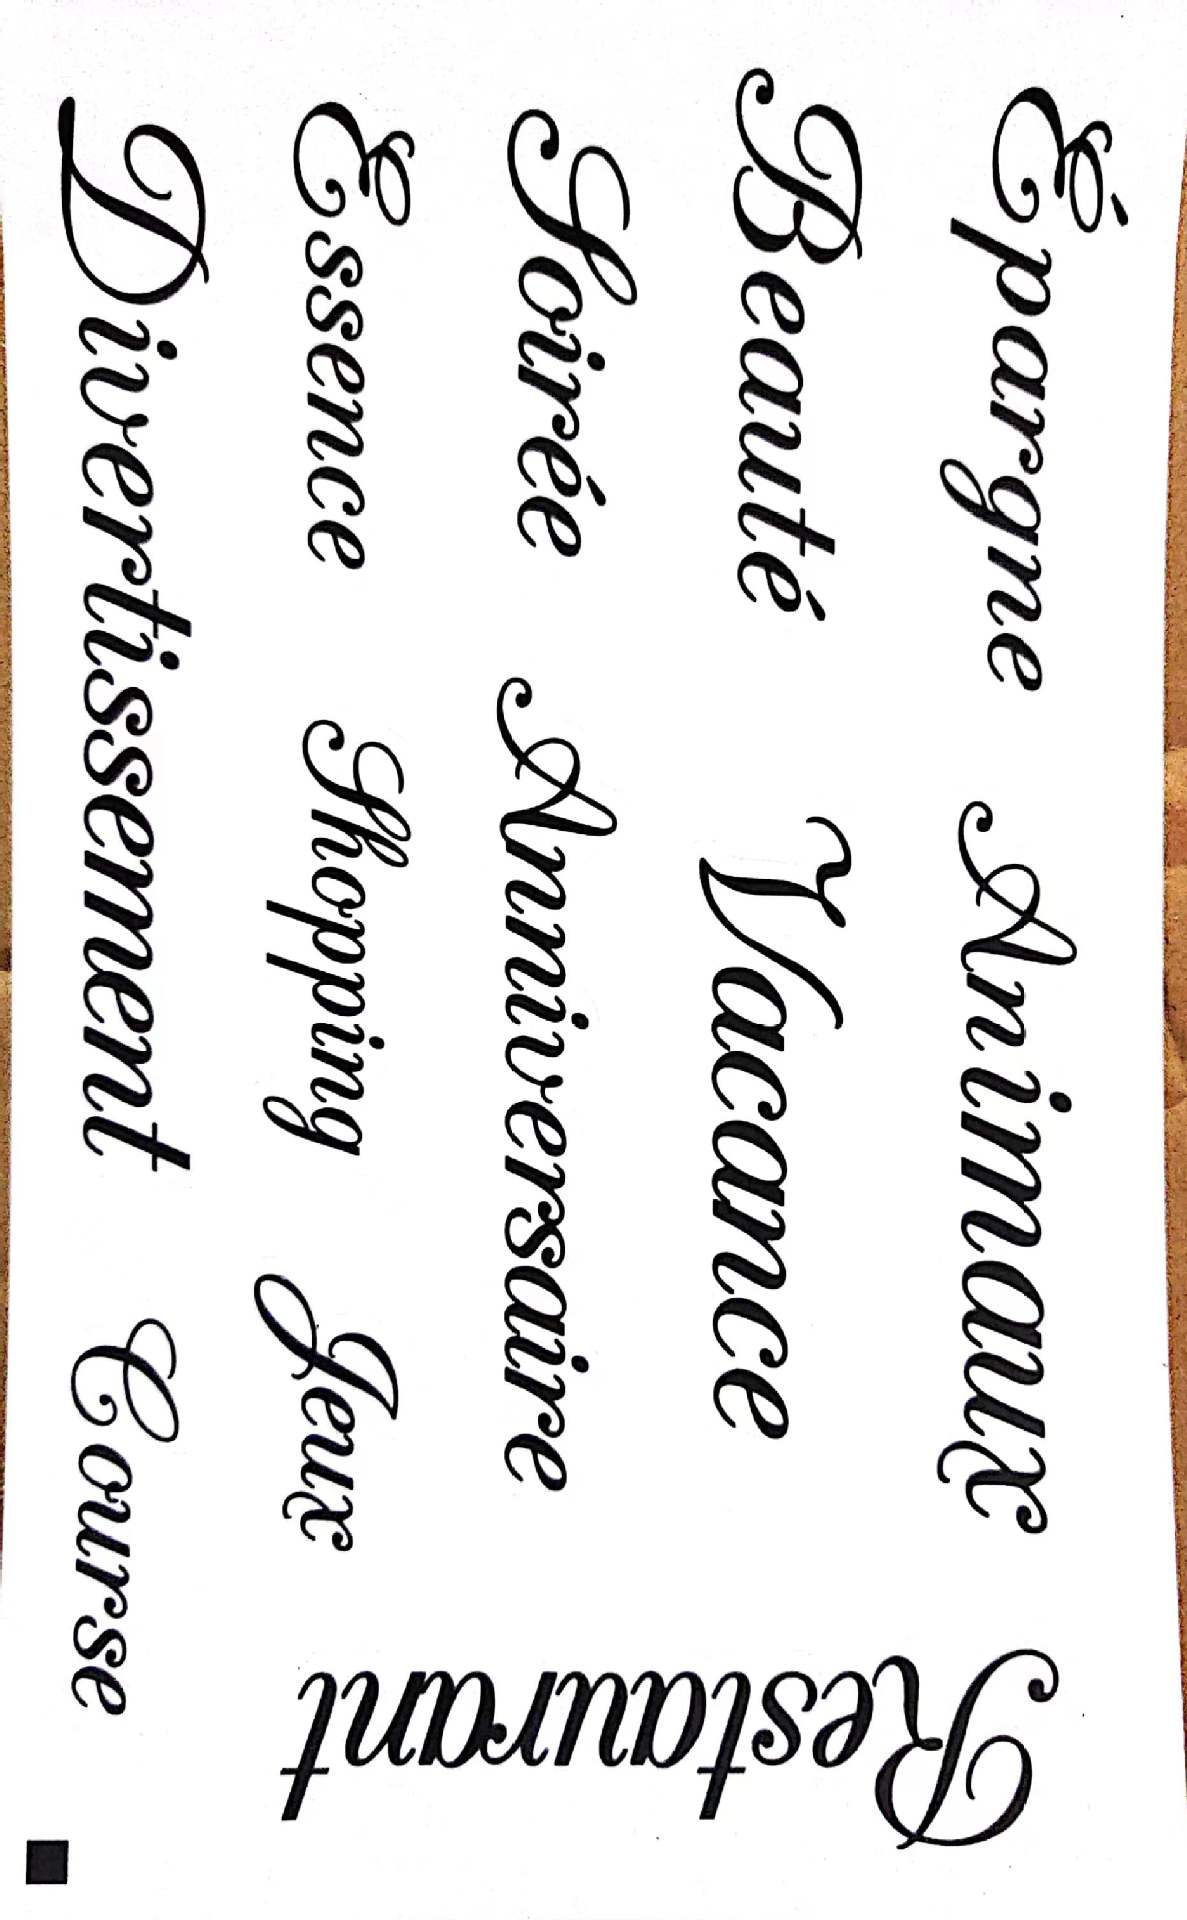 Épargne Animaux
Beauté Vacance
Soirée Anniversaire
Essence Shopping Jeux
Divertissement Course
Restaurant